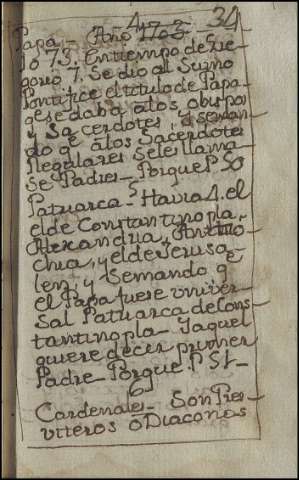 4 34
Papa,- Año 1703-
lo 73. En tiempo de Gre-
gorio 7. Se dio al Sumo
Pontifice el titulo de Papa-
qe se daba a los obispos
y Sacerdotes, 
do qe a los Sacerdotes
Regulares Seles llama
Se Padres- Porque P. 50
5
Patriarca- Havia 4. el
el de Constantinopla,
Alexandria, Antiio-
chia, y el de Jerusa-
lem, y Se mando qe
el Papa fuese univer-
Sal Patriarca de Cons-
tantinopla- Iaquel
quiere decir primer
Padre- Porque. P. 51-
6
Cardenales- Son Pres-
viteros o Diaconos